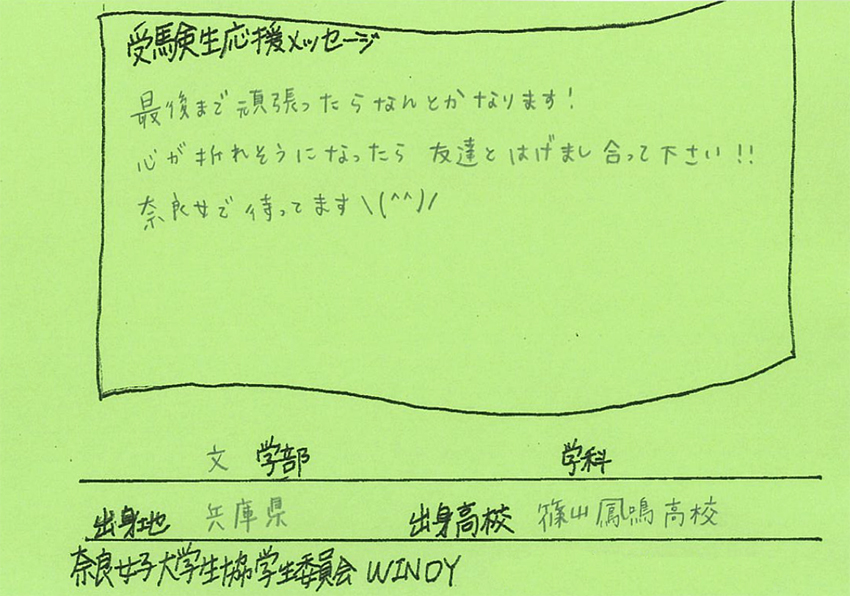 受験生応援メッセージ
最後まで頑張ったらなんとかなります!
心が折れそうになったら 友達とはげまし合って下さい!!
奈良女で待ってます\(^^)/
文 学部 学科
出身地 兵庫県 出身高校 篠山鳳鳴高校
奈良女子大学生協学生委員会 WINDY